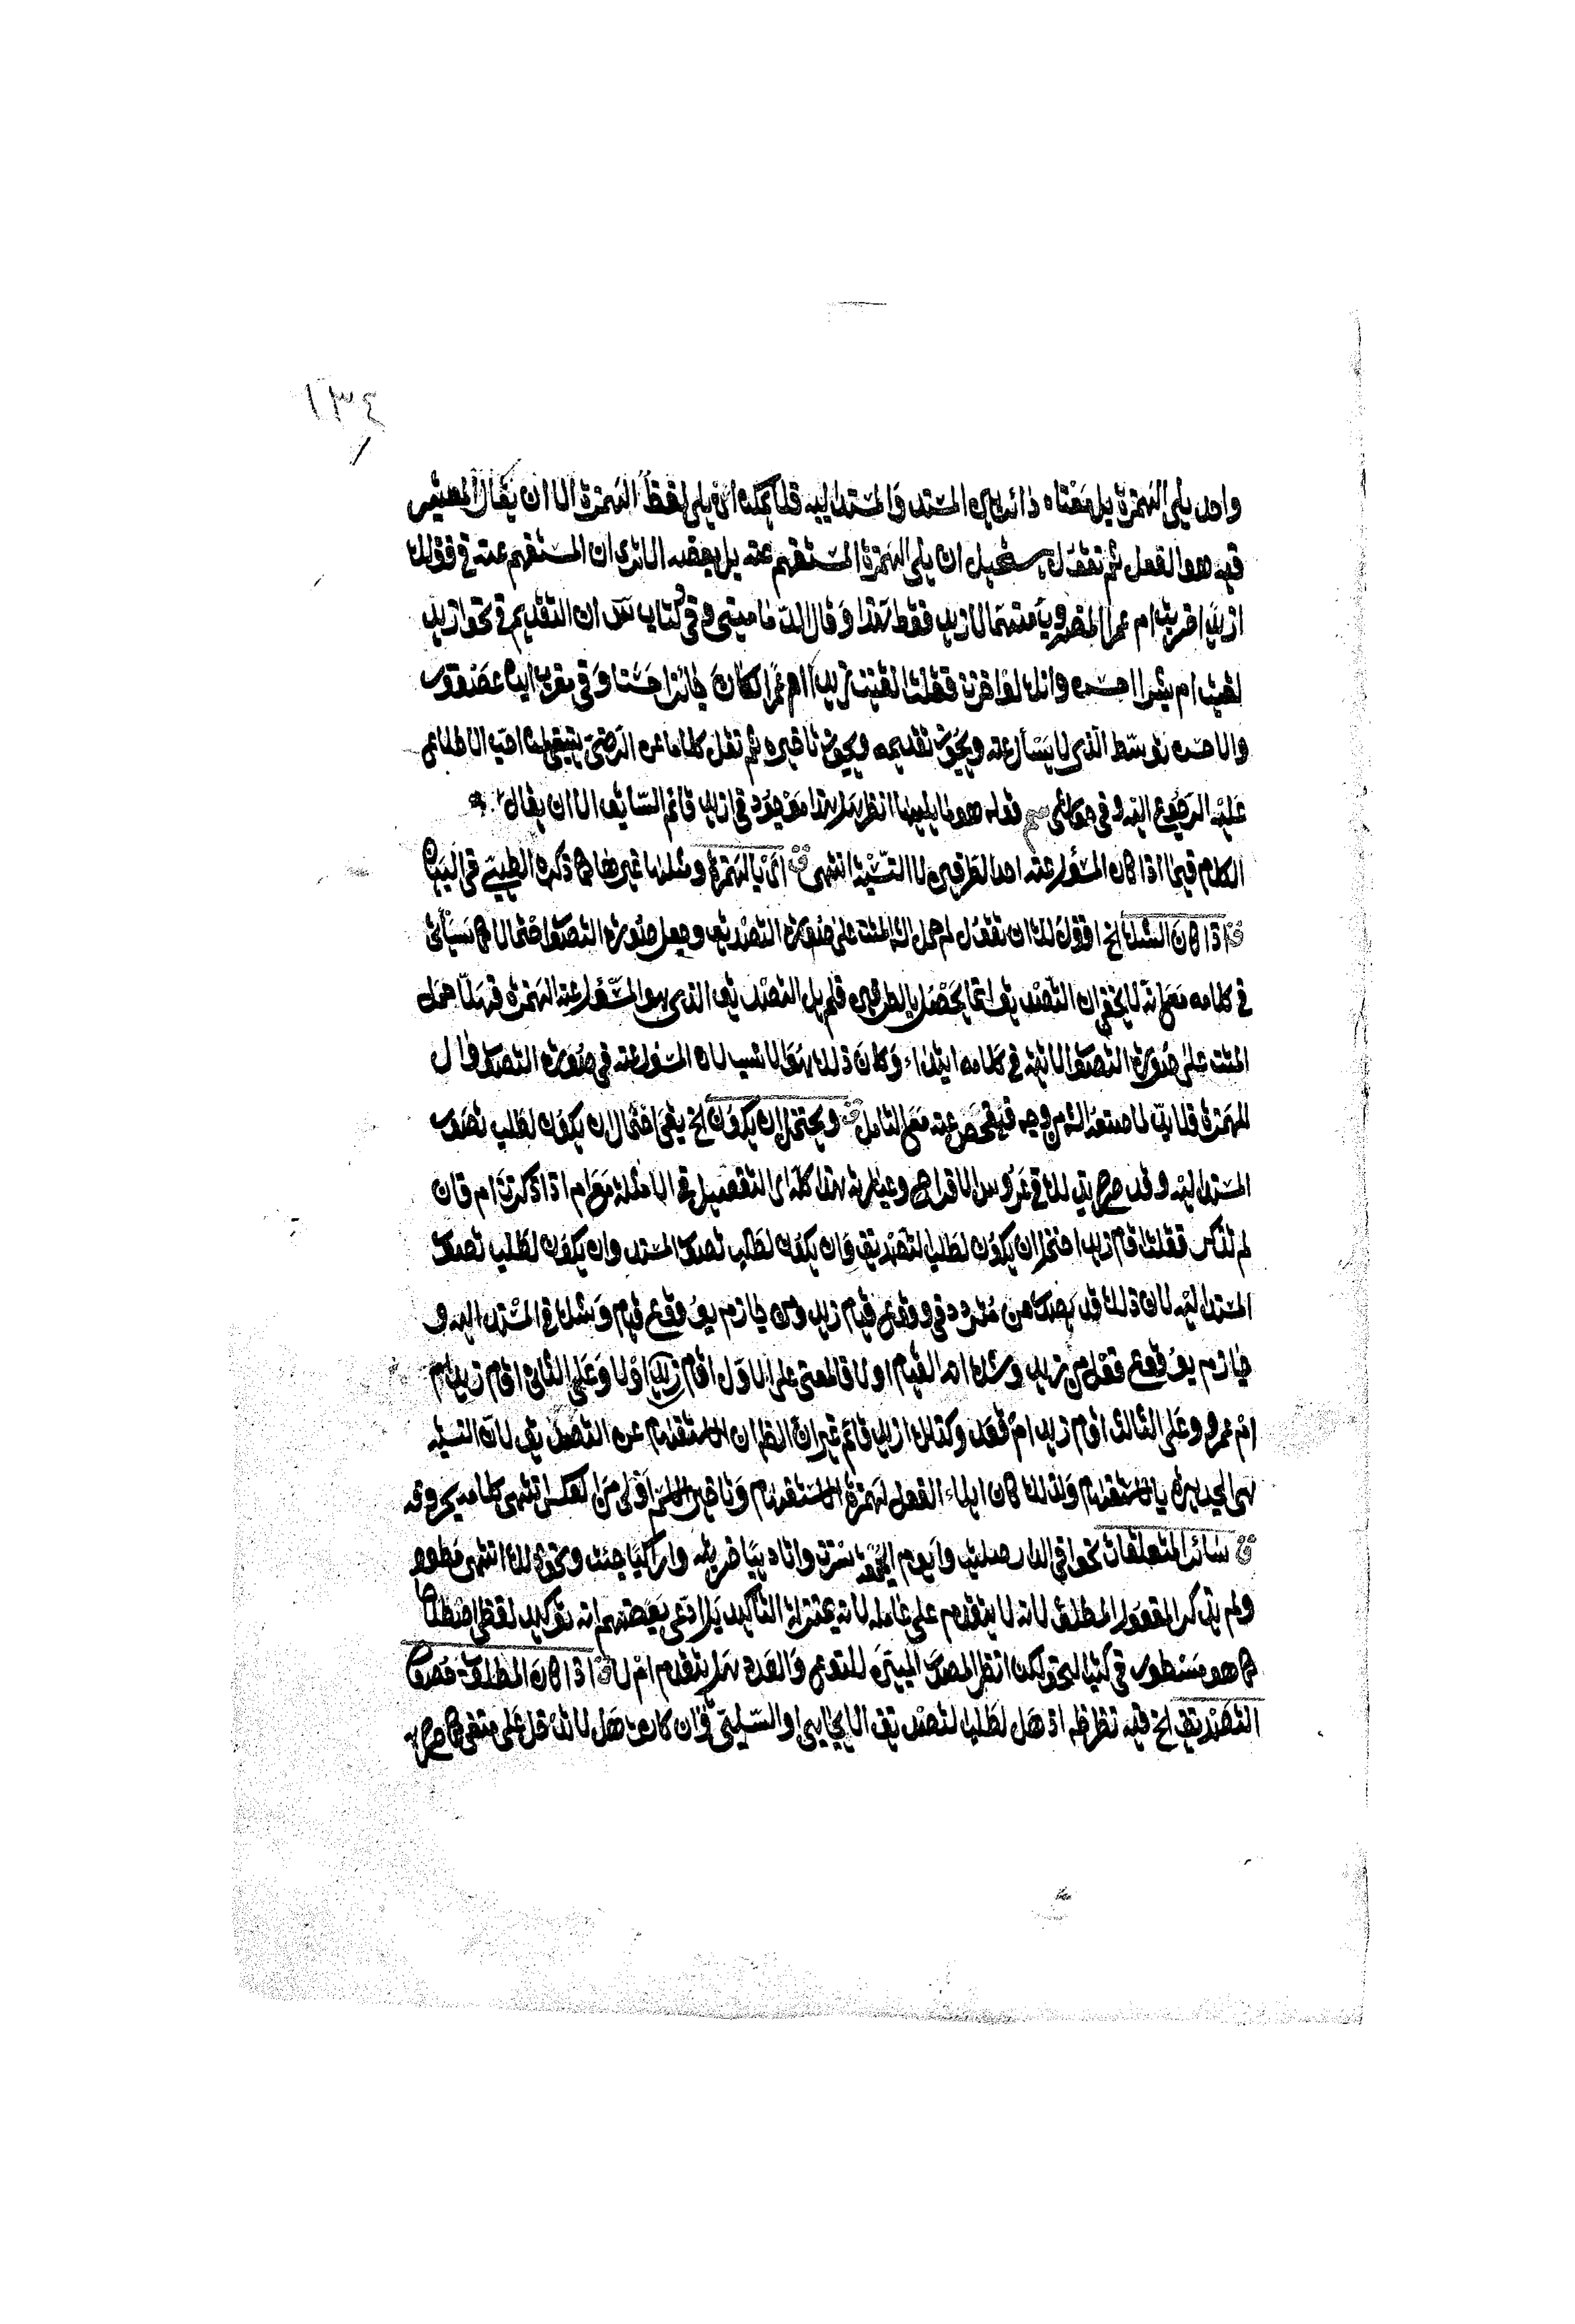 ١٣٤
واحد يلى الهمزة بل معناه دائر بين المسند والمسند اليه فلا يمكنه ان يلى لفظ الهمزة الا ان يقال المعتبر
فيه هو الفعل ثم نقول يستحيل ان يلى الهمزة المستفهم عنه بل بعضه الا ترى ان المستفهم عنه في قولك
ازيدا ضربت ام عمرا المضروب منهما لا زيد فقط هذا وقال الدماميني وفي كتاب س ان التقديم في نحو ازيدا
لقيت ام بشرا احسن وانك لو اخرت فقلت القيت زيدا ام عمرا لكان جائزا حسنا وفي مقرب ابن عصفور
والاحسن توسط الذى لا يسأل عنه ويجوز تقديمه ويجوز تاخيره ثم نقل كلاما عن الرضى ينبغي لمن احب الاطلاع
عليه الرجوع اليه وفي حواشى سم قوله هو ما يليها انظر هل هذا موجود في ازيد قائم السابق الا ان يقال
الكلام فيما اذا كان المسؤل عنه احد الطرفين لا النسبة انتهى ق اى بالهمزة ومثلها غيرها كما ذكره الطيبي في التبيان
ق اذا كان الشك الخ اقول لك ان تقول لم حمل المتن على صورة التصديق وجعل صورة التصور احتمالا كما سياتى
في كلامه مع انه لا يخفى ان التصديق انما يحصل بالطرفين فلم يل التصديق الذى هو المسؤل عنه الهمزة فهلا حمل
المتن على صورة التصور الاتية في كلامه ابتداء وكان ذلك هو الانسب لان المسؤل عنه في صورة التصور وال
للهمزة فلا بد لما صنعه من وجه فيفحص عنه مع التامل ق ويحتمل ان يكون الخ بقى احتمال ان يكون لطلب تصور
المسند اليه وقد صرح بذلك في عروس الافراح وعبارته هذا كله اى التفصيل في الامثلة مع ام اذا ذكرت ام فان
لم تذكر فقلت اقام زيد احتمل ان يكون لطلب التصديق وان يكون لطلب تصور المسند وان يكون لطلب تصور
المسند اليه لان ذلك قد يصدر من متردد في وقوع قيام زيد ومن جازم بوقوع قيام وشك في المسند اليه و
جازم بوقوع فعل من زيد وشك اهو القيام او لا فالمعنى على الاول اقام زيد اولا وعلى الثاني اقام زيد ام
ام عمرو وعلى الثالث اقام زيد ام قعد وكذلك ازيد قائم غير ان الظاهر ان الاستفهام عن التصديق لان النسبة
هي الجديرة بالاستفهام ولذلك كان ايلاء الفعل لهمزة الاستفهام وتاخير الاسم اولى من العكس انتهى كلامه بحروفه
ق سائر المتعلقات نحو افي الدار صليت وايوم الجمعة سرت واتاديبا ضربته واراكبا جئت ونحو ذلك انتهى مطول
ولم يذكر المفعول المطلق لانه لا يتقدم على عامله لانه بمنزلة التأكيد بل ادعى بعضهم انه توكيد لفظي اصطلاحا
كما هو مسطور في كتب النحو ولكن انظر المصدر المبين للنوع والعدد هل يتقدم ام لا ق اذا كان المطلوب حصول
التصديق الخ فيه نظر ظاهر اذ هل لطلب التصديق الايجابي او السلبي وان كانت هل لا تدخل على منفى كما صرح به